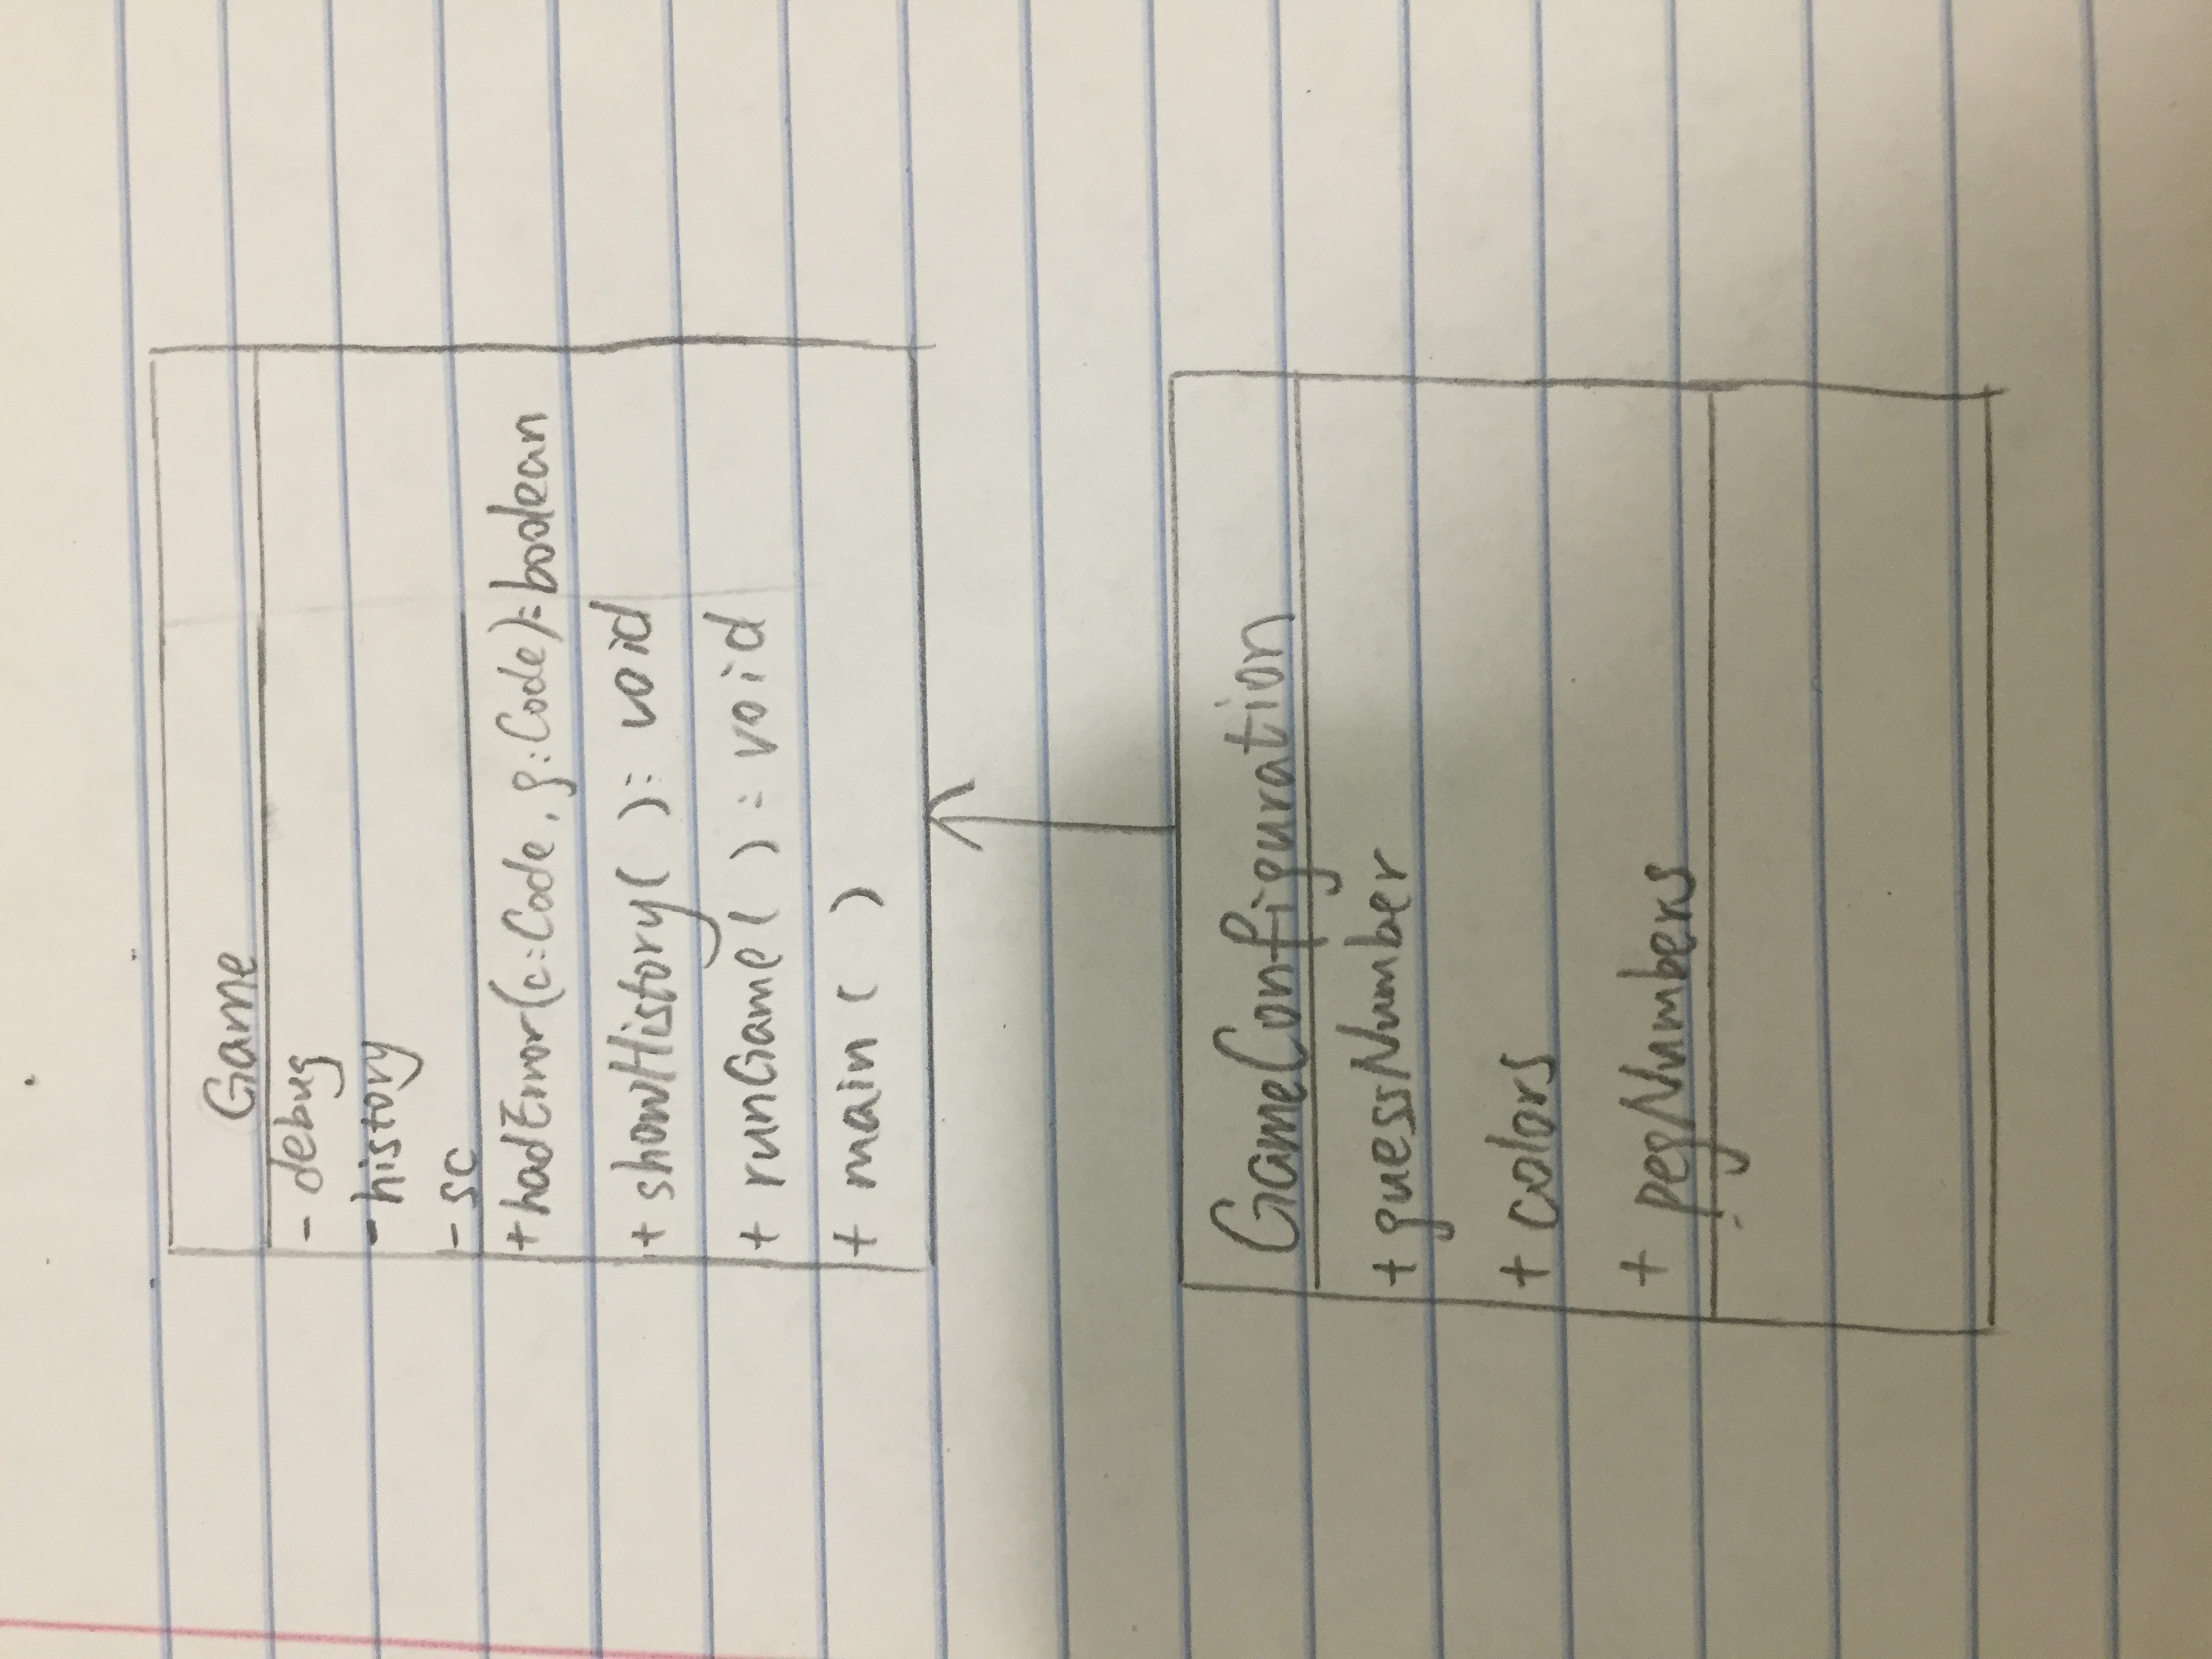 Game
- debug
- history
- sc
+ hadError(c:Code, g:Code): boolean
+ showHistory( ): void
+ runGame( ): void
+ main( )
GameConfiguration
+ guessNumber
+ colors
+ pegNumbers